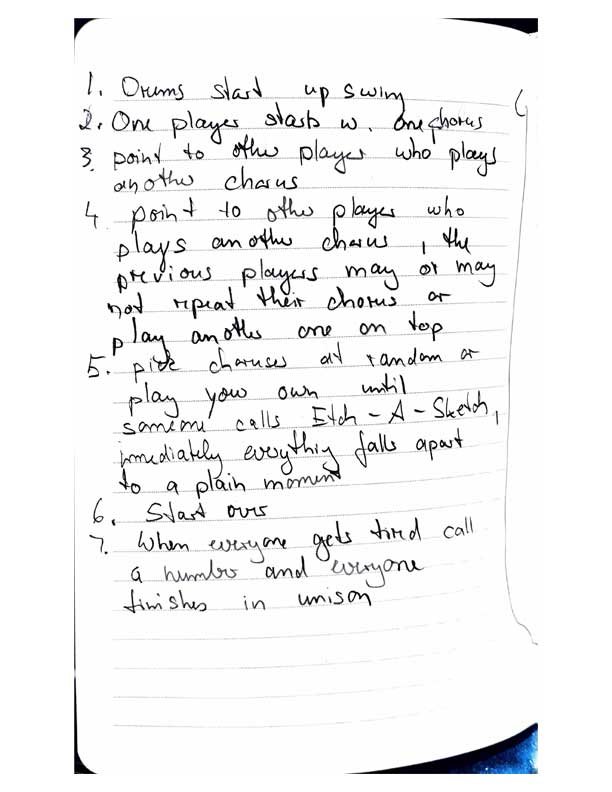 1. Drums start up swing
2. One player starts w. one chorus
3. point to other player who plays
another chorus
4 point to other player who
plays another chorus, the
previous players may or may
not repeat their chorus or
play another one on top
5. pick choruses at random or
play your own until
someone calls Etch-A-Sketch,
immediately everything falls apart
to a plain moment
6. Start over
7. When everyone gets tired call
a number and everyone
finishes in unison